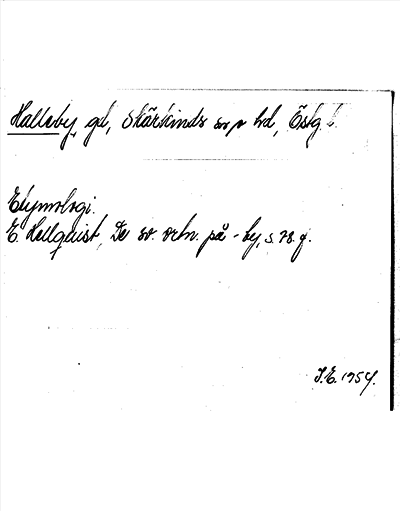 Halleby, gd, Skärkinds sn o hd, Östg. l.
Etymologi.
E. Hellquist, De sv. ortn. på -by, s. 78 f.
J.E. 1954.